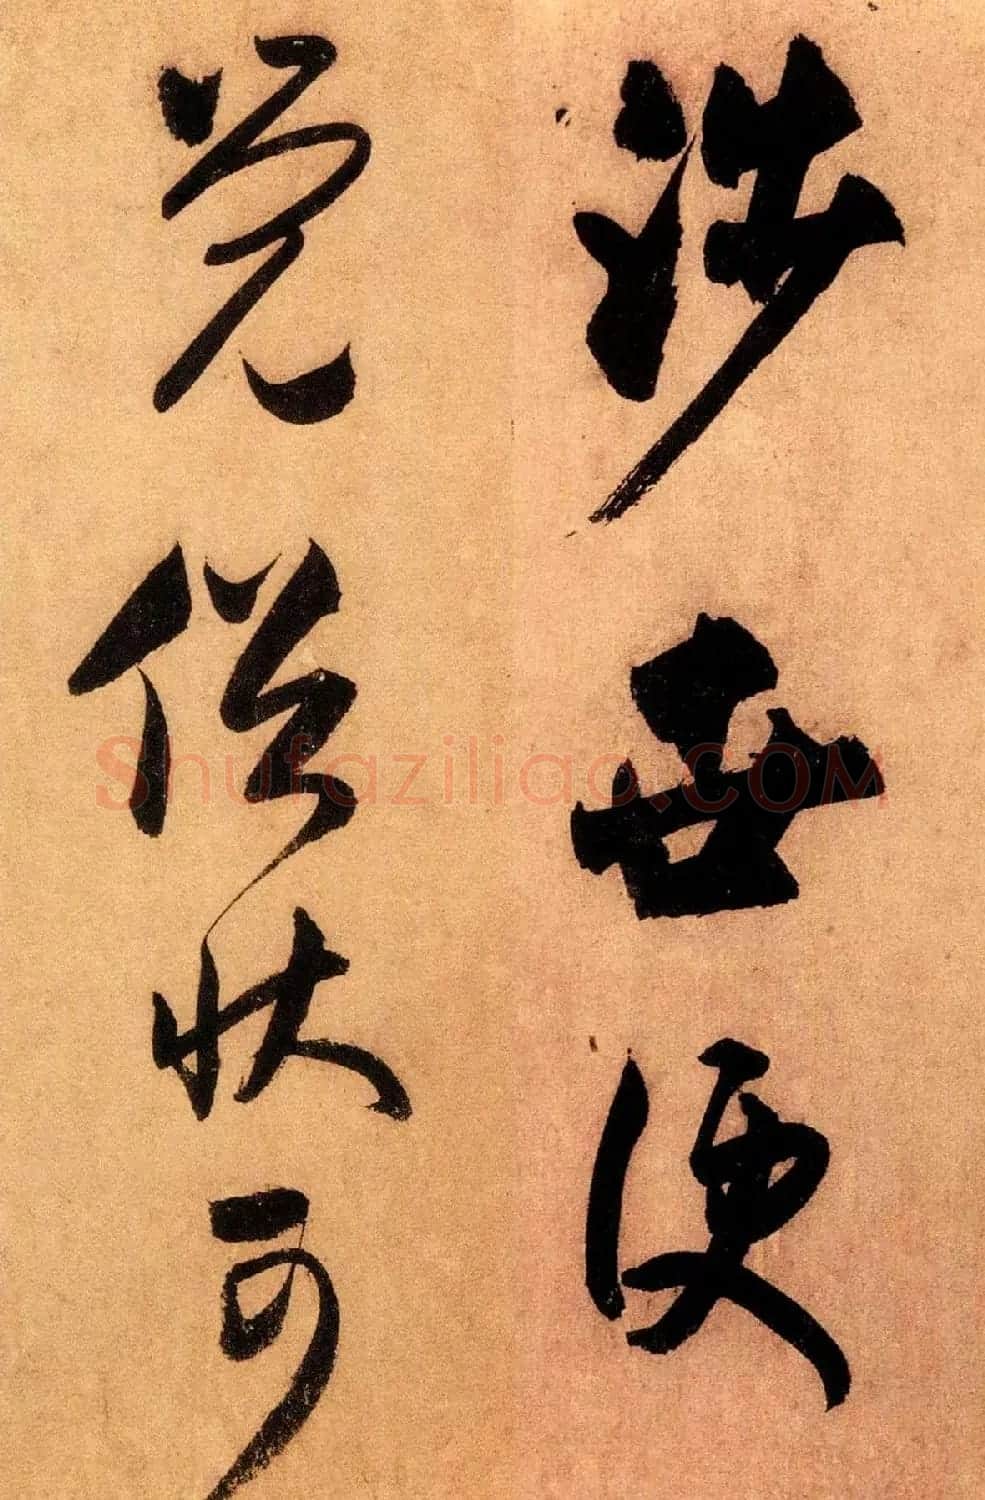 涉世便
觉俗状可
Shufaziliao.COM